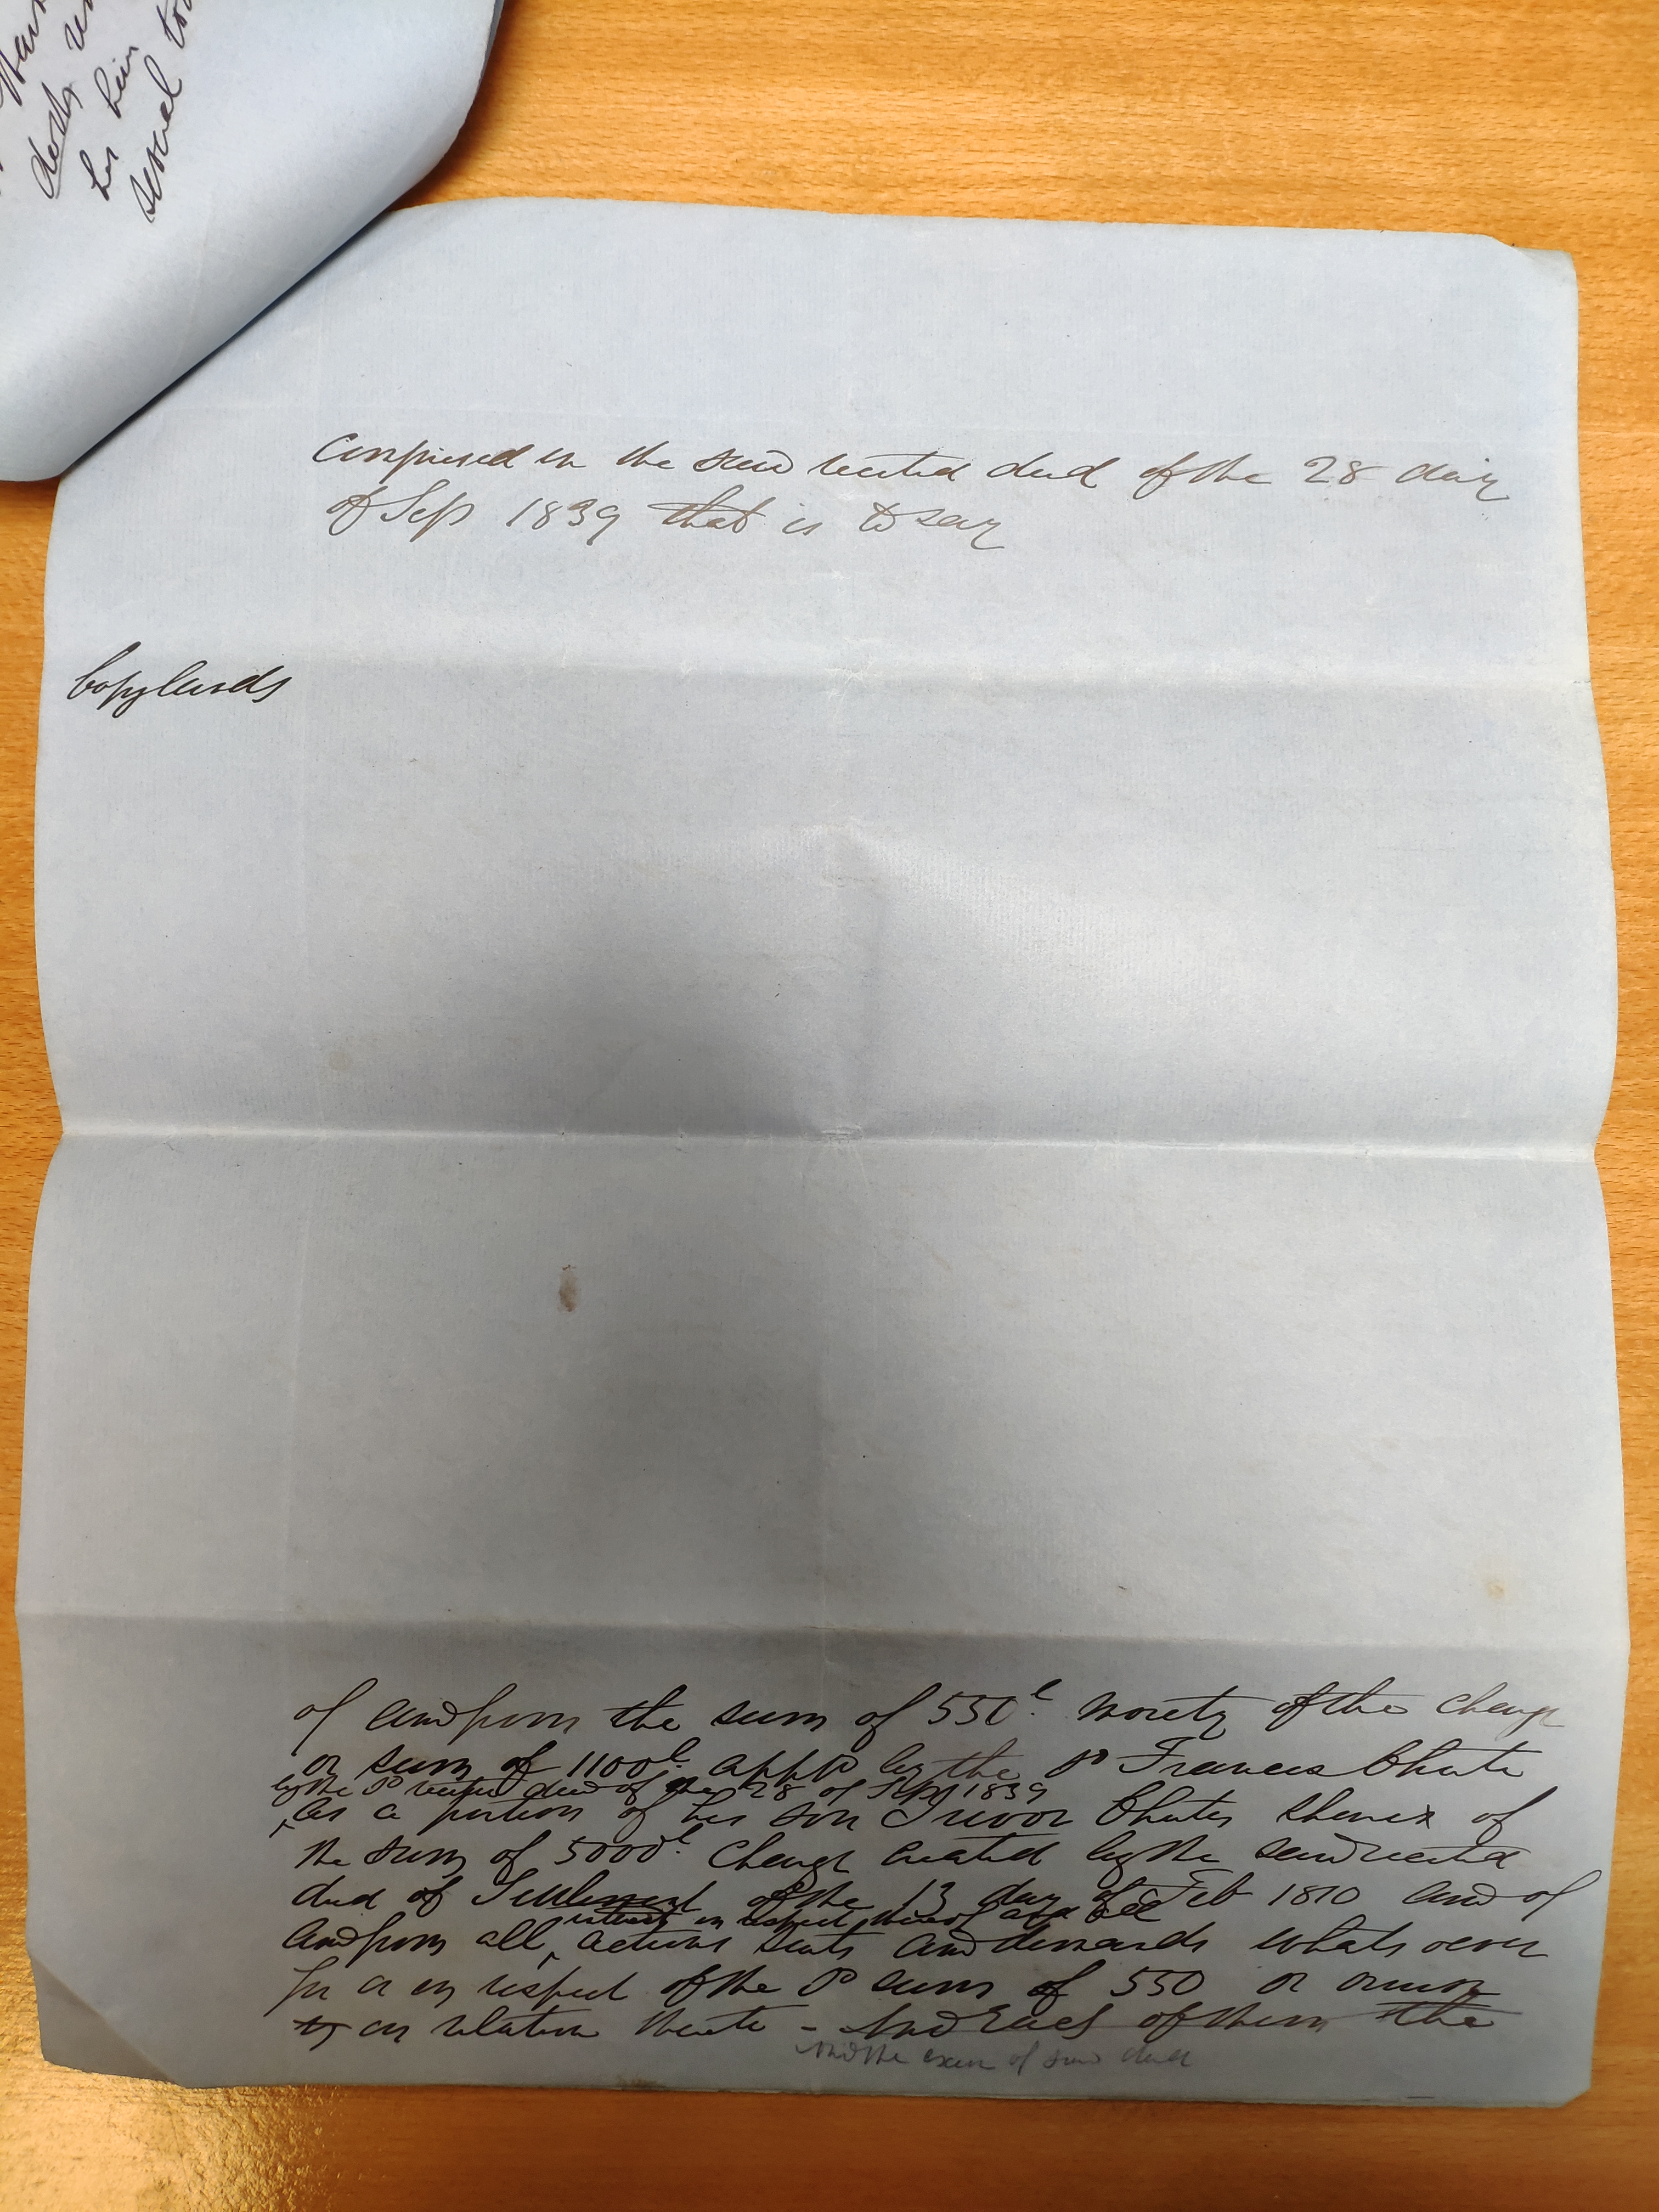 his him
several
Comprised in the said recited deed of the 28 day
of Sep 1839 that is to say
Copy lands
of and from the sum of 550l. moiety of the charge
or sum of 1100l. appd by the sd Francis Chute
by the sd recited deed of the 28 of Sep 1839
as a portion of his son Trevor Chutes share of
the sum of 5000l. charge created by the said recited
deed of Settlement of the 13 day of Feb 1810 and of
interest in respect thereof and
and from all actions suits and demands whatsoever
for or in respect of the sd sum of 550 or
or in relation thereto - And Each of them the
And the exn of said deed